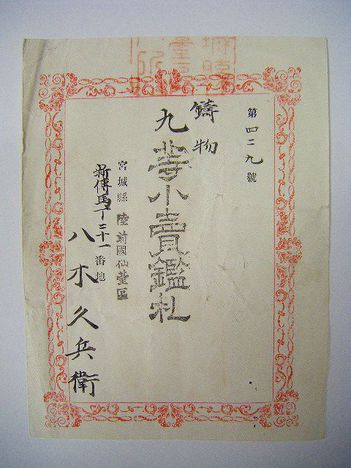 第四二九號
鑄物
九等小賣鑑札
宮城縣陸前國仙臺區
新傳馬丁二十一番地
八木久兵衛